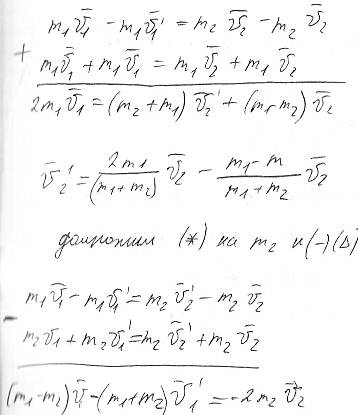 m₁v̄₁ - m₁v̄₁' = m₂ v̄₂ - m₂ v̄₂
+
m₁v̄₁ + m₁v̄₁ = m₁ v̄₂ + m₁ v̄₂
2m₁v̄₁ = (m₂ + m₁) v̄₂' + (m₁-m₂) v̄₂
v̄₂' = 2m₁/(m₁+m₂) v̄₂ - m₁-m/m₁+m₂ v̄₂
домножим (*) на m₂ и (-) (Δ)
m₁v̄₁ - m₁v̄₁' = m₂ v̄₂' - m₂ v̄₂
-
m₂v₁ + m₂v̄₁' = m₂ v̄₂' + m₂ v̄₂
(m₁-m₂)v̄₁ - (m₁+m₂) v̄₁' = -2 m₂ v̄₂